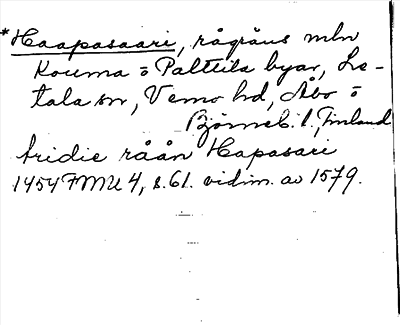 *Haapasaari, rågräns mln
Kouma o Palttila byar, Le-
tala sn, Vemo hd, Åbo o
Björneb. l., Finland
tridie råån Hapasari
1454 FMU 4, s. 61. vidim. av 1579.